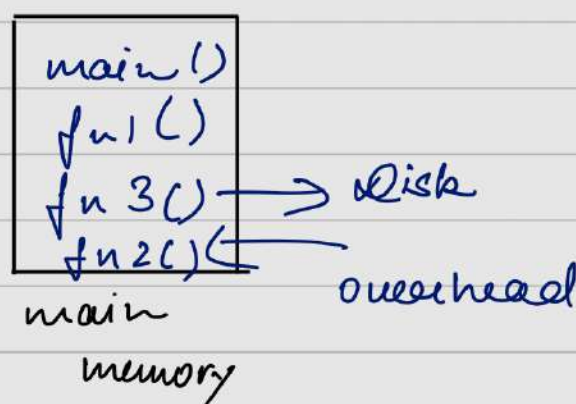 main()
fn1()
fn3() → Disk
fn2() ←
overhead
main
memory